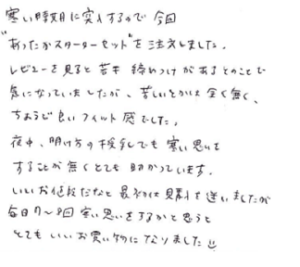 寒い時期に突入するので今回
"あったかスターターセット"を注文しました。
レビューを見ると若干締めつけがあるとのことで
気になっていましたが、苦しいとかは全く無く、
ちょうど良いフィット感でした。
夜中、明け方の授乳でも寒い思いを
することが無くとても助かっています。
いいお値段だなと最初は見て迷いましたが
毎日7〜8回寒い思いをするかと思うと
とてもいいお買い物になりました